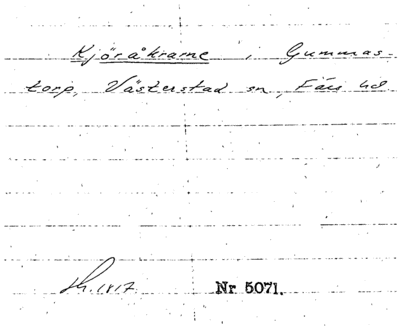 Kjöråkrarne i Gummas-
torp, Västerstad sn, Färs hd
Sk. 1817 Nr 5071.